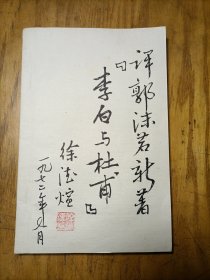 评郭沫若新著
『李白与杜甫』
徐德煊
一九七二年九月